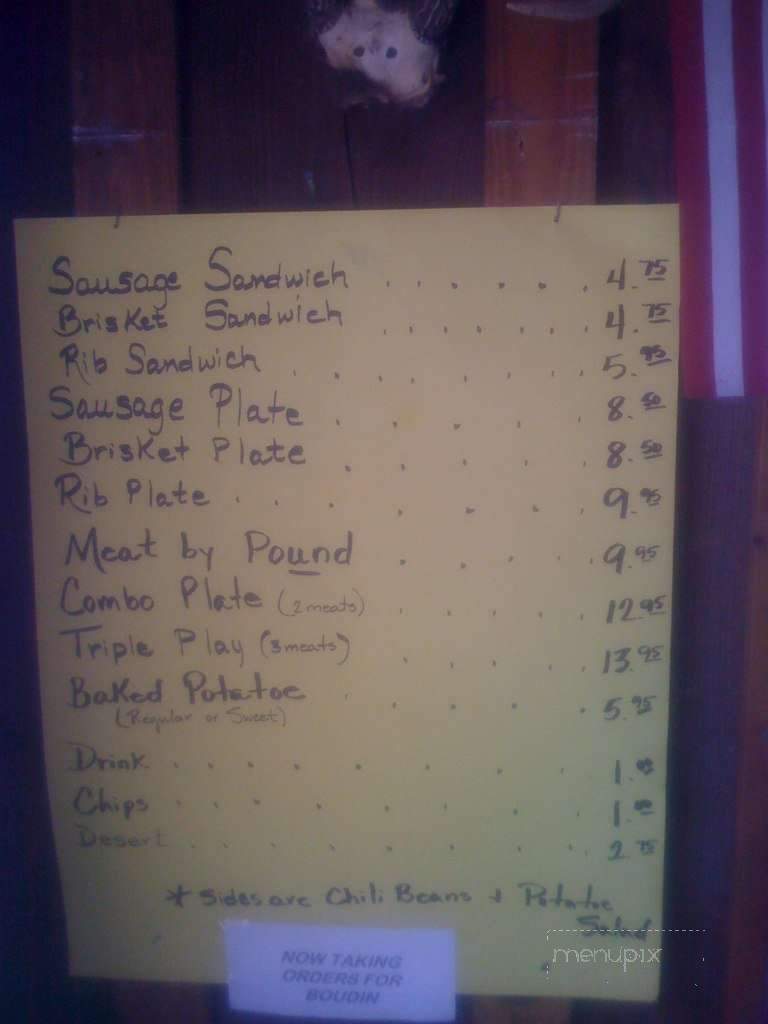 Sausage Sandwich . . . . . . 4.75
Brisket Sandwich . . . . . . 4.75
Rib Sandwich . . . . . . . 5.95
Sausage Plate . . . . . 8.50
Brisket Plate . . . . . 8.50
Rib Plate . . . . . . 9.95
Meat by Pound . . . . 9.95
Combo Plate (2 meats) . . . . 12.95
Triple Play (3 meats) . . . . 13.95
Baked Potatoe . . . . . 5.95
(Regular or Sweet)
Drink . . . . . . . 1.00
Chips . . . . . . . 1.00
Desert . . . . . . . 2.75
* Sides are Chili Beans + Potatoe
Salad
NOW TAKING
ORDERS FOR
BOUDIN
menupix